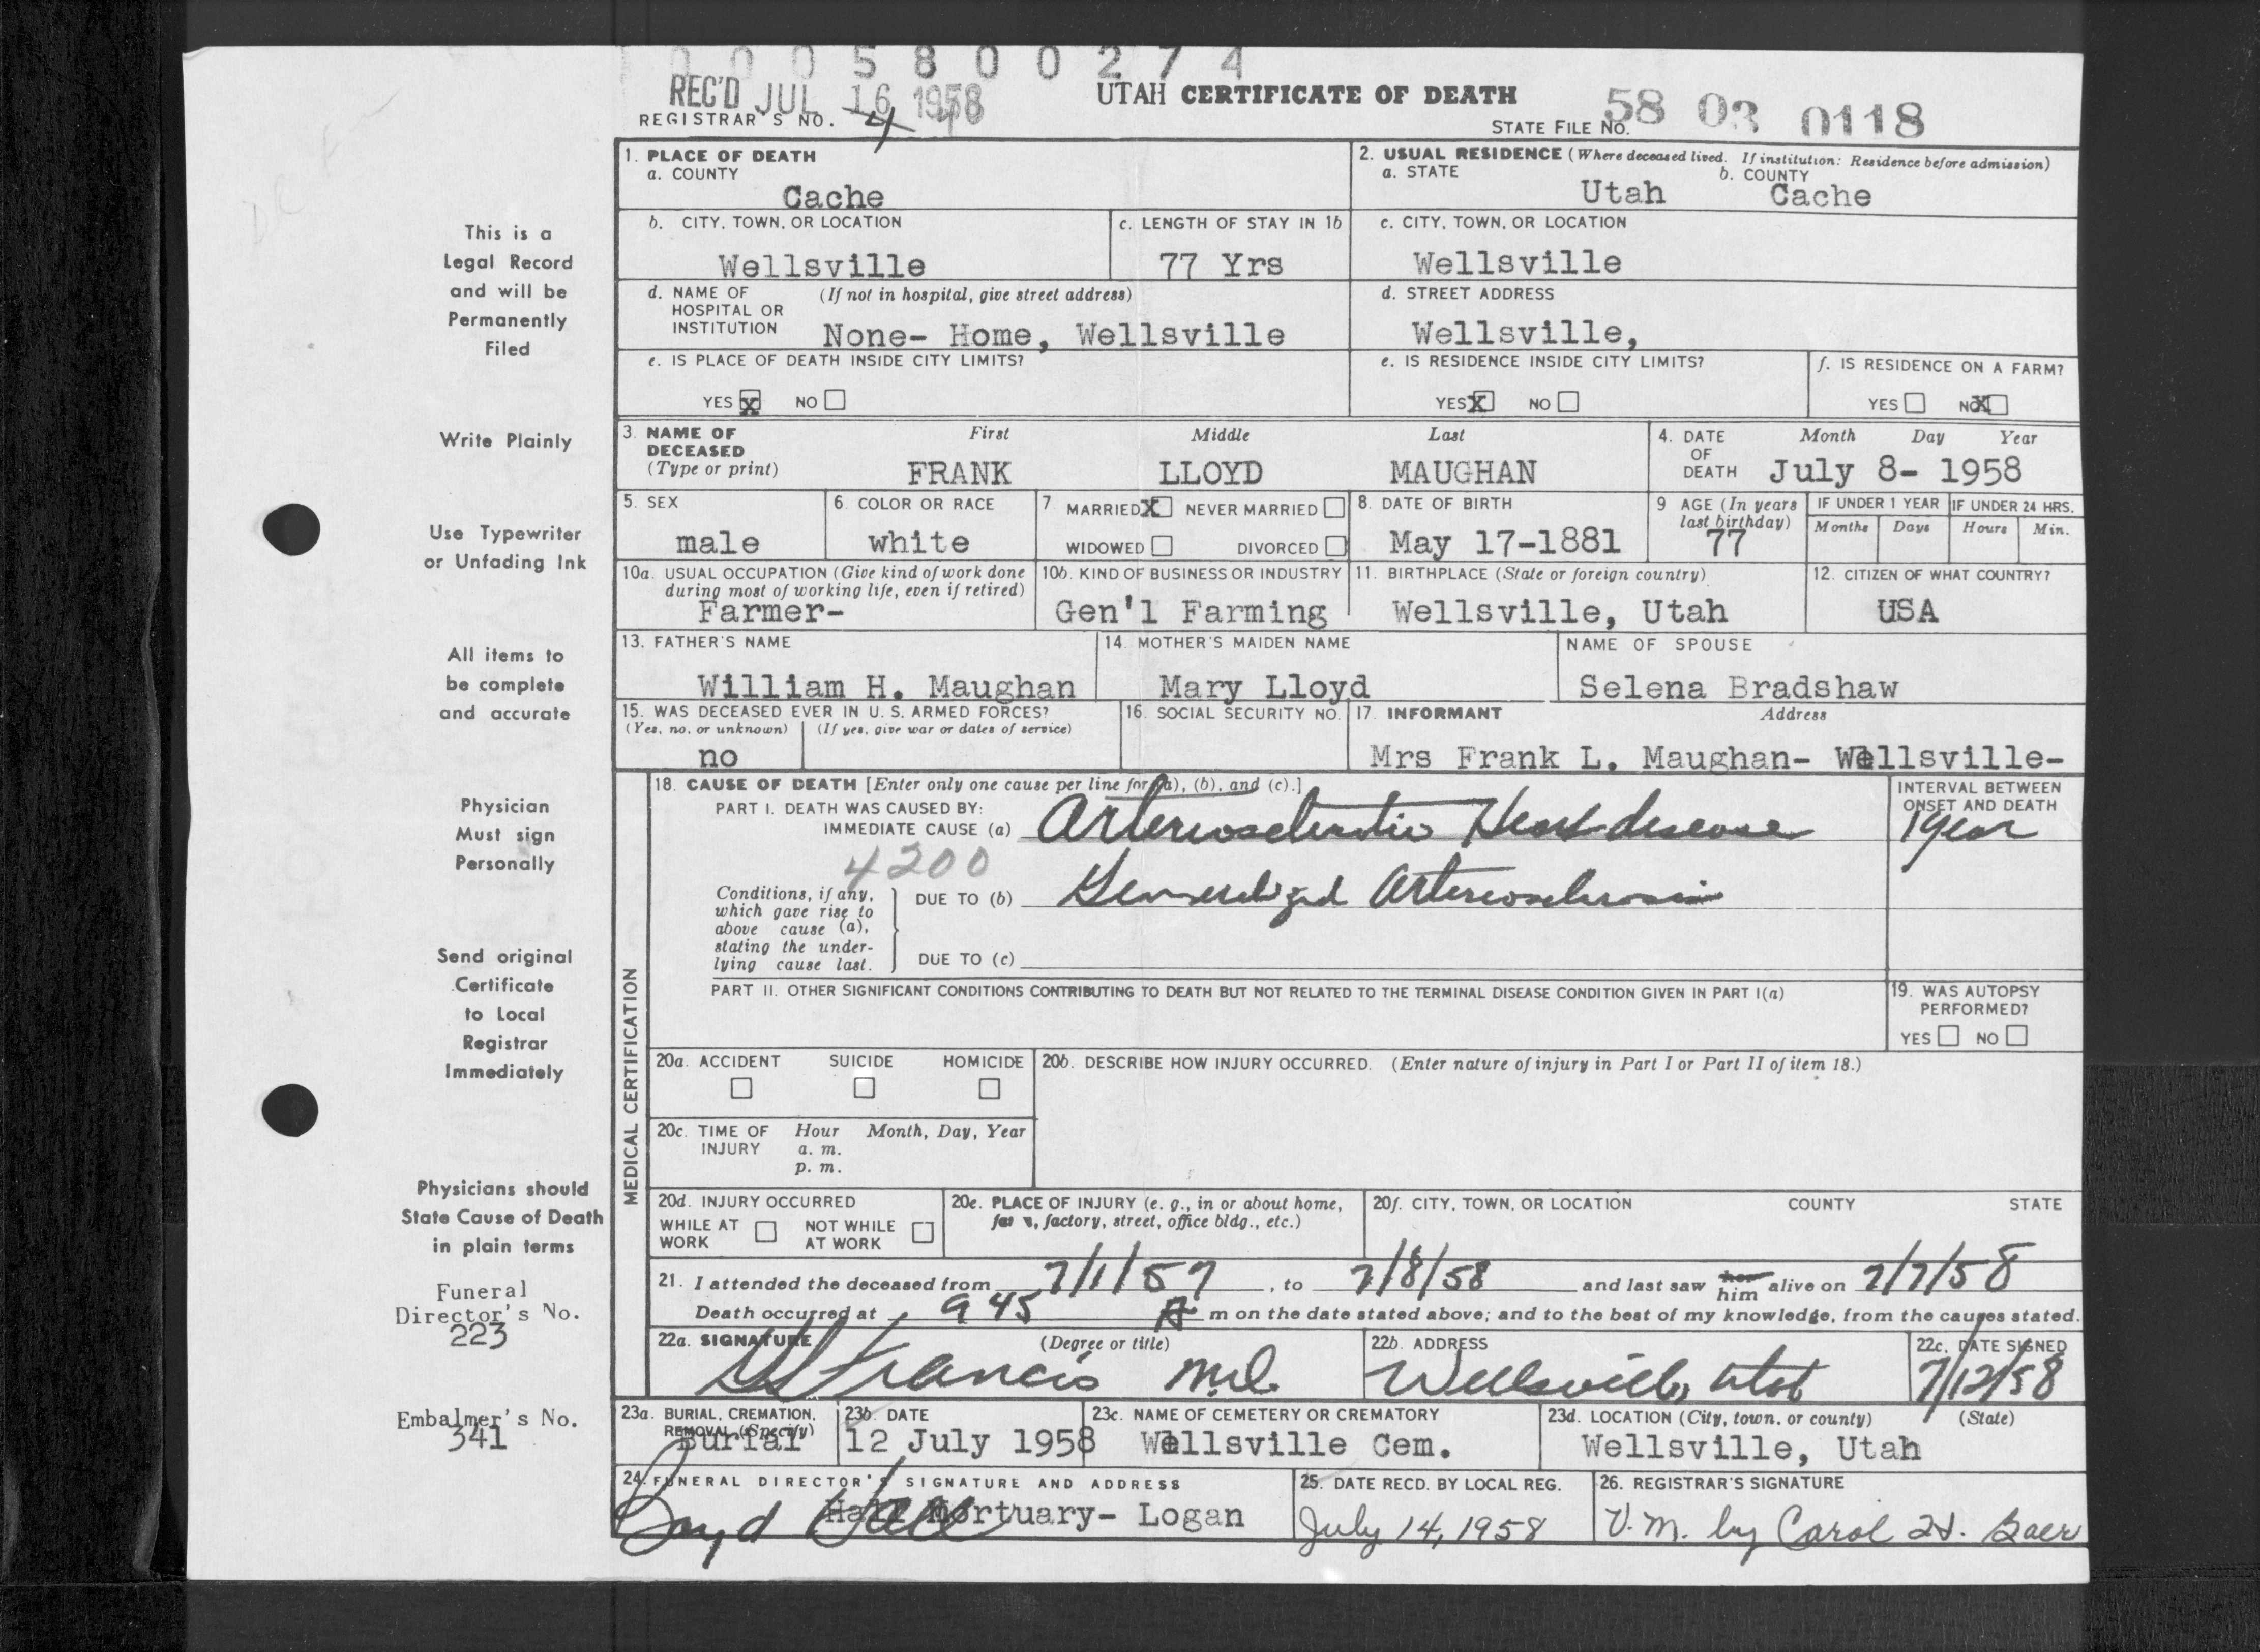 0 0 0 5 8 0 0 2 7 4
REC'D JUL 16 1958
UTAH CERTIFICATE OF DEATH
REGISTRAR'S NO. 4
STATE FILE NO. 58 03 0118
This is a
Legal Record
and will be
Permanently
Filed
Write Plainly
Use Typewriter
or Unfading Ink
All items to
be complete
and accurate
Physician
Must sign
Personally
Send original
Certificate
to Local
Registrar
Immediately
Physicians should
State Cause of Death
in plain terms
Funeral
Director's No.
223
Embalmer's No.
341
1. PLACE OF DEATH
a. COUNTY
Cache
2. USUAL RESIDENCE (Where deceased lived. If institution: Residence before admission)
a. STATE b. COUNTY
Utah Cache
b. CITY, TOWN, OR LOCATION
Wellsville
c. LENGTH OF STAY IN 1b
77 Yrs
c. CITY, TOWN, OR LOCATION
Wellsville
d. NAME OF (If not in hospital, give street address)
HOSPITAL OR
INSTITUTION None- Home, Wellsville
d. STREET ADDRESS
Wellsville,
e. IS PLACE OF DEATH INSIDE CITY LIMITS?
YES X NO
e. IS RESIDENCE INSIDE CITY LIMITS?
YES X NO
f. IS RESIDENCE ON A FARM?
YES NO X
3. NAME OF First Middle Last
DECEASED
(Type or print) FRANK LLOYD MAUGHAN
4. DATE Month Day Year
OF
DEATH July 8- 1958
5. SEX
male
6. COLOR OR RACE
white
7 MARRIED X NEVER MARRIED
WIDOWED DIVORCED
8. DATE OF BIRTH
May 17-1881
9 AGE (In years
last birthday)
77
IF UNDER 1 YEAR
Months Days
IF UNDER 24 HRS.
Hours Min.
10a. USUAL OCCUPATION (Give kind of work done
during most of working life, even if retired)
Farmer-
10b. KIND OF BUSINESS OR INDUSTRY
Gen'l Farming
11. BIRTHPLACE (State or foreign country)
Wellsville, Utah
12. CITIZEN OF WHAT COUNTRY?
USA
13. FATHER'S NAME
William H. Maughan
14. MOTHER'S MAIDEN NAME
Mary Lloyd
NAME OF SPOUSE
Selena Bradshaw
15. WAS DECEASED EVER IN U. S. ARMED FORCES?
(Yes, no, or unknown) (If yes, give war or dates of service)
no
16. SOCIAL SECURITY NO.
17. INFORMANT Address
Mrs Frank L. Maughan- Wellsville-
MEDICAL CERTIFICATION
18. CAUSE OF DEATH [Enter only one cause per line for (a), (b), and (c).]
PART I. DEATH WAS CAUSED BY:
IMMEDIATE CAUSE (a) Arteriosclerotic Heart disease
INTERVAL BETWEEN
ONSET AND DEATH
1 year
4200
Conditions, if any,
which gave rise to
above cause (a),
stating the under-
lying cause last.
DUE TO (b) Generalized Arteriosclerosis
DUE TO (c)
PART II. OTHER SIGNIFICANT CONDITIONS CONTRIBUTING TO DEATH BUT NOT RELATED TO THE TERMINAL DISEASE CONDITION GIVEN IN PART I(a)
19. WAS AUTOPSY
PERFORMED?
YES NO
20a. ACCIDENT SUICIDE HOMICIDE
20b. DESCRIBE HOW INJURY OCCURRED. (Enter nature of injury in Part I or Part II of item 18.)
20c. TIME OF Hour Month, Day, Year
INJURY a. m.
p. m.
20d. INJURY OCCURRED
WHILE AT WORK NOT WHILE AT WORK
20e. PLACE OF INJURY (e. g., in or about home,
farm, factory, street, office bldg., etc.)
20f. CITY, TOWN, OR LOCATION COUNTY STATE
21. I attended the deceased from 7/1/57, to 7/8/58 and last saw her him alive on 7/7/58
Death occurred at 9 45 A m on the date stated above; and to the best of my knowledge, from the causes stated.
22a. SIGNATURE (Degree or title)
Francis M.D.
22b. ADDRESS
Wellsville, Utah
22c. DATE SIGNED
7/12/58
23a. BURIAL, CREMATION,
REMOVAL (Specify)
Burial
23b. DATE
12 July 1958
23c. NAME OF CEMETERY OR CREMATORY
Wellsville Cem.
23d. LOCATION (City, town, or county) (State)
Wellsville, Utah
24. FUNERAL DIRECTOR'S SIGNATURE AND ADDRESS
Boyd Hall
Hall Mortuary- Logan
25. DATE RECD. BY LOCAL REG.
July 14, 1958
26. REGISTRAR'S SIGNATURE
V. M. by Carol H. Baer